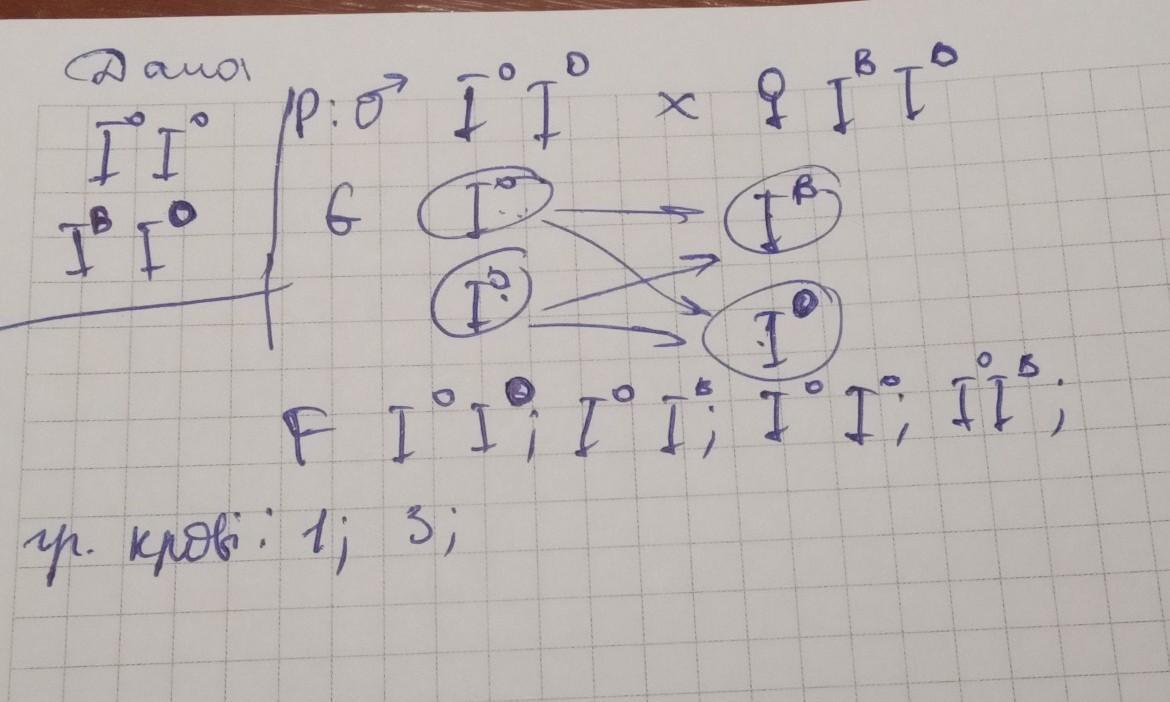 Дано
I⁰ I⁰
Iᴮ I⁰
P: ♂ I⁰ I⁰ × ♀ Iᴮ I⁰
G I⁰ Iᴮ
I⁰ I⁰
F I⁰ I⁰; I⁰ Iᴮ; I⁰ I⁰; I⁰ Iᴮ;
гр. крові: 1; 3;